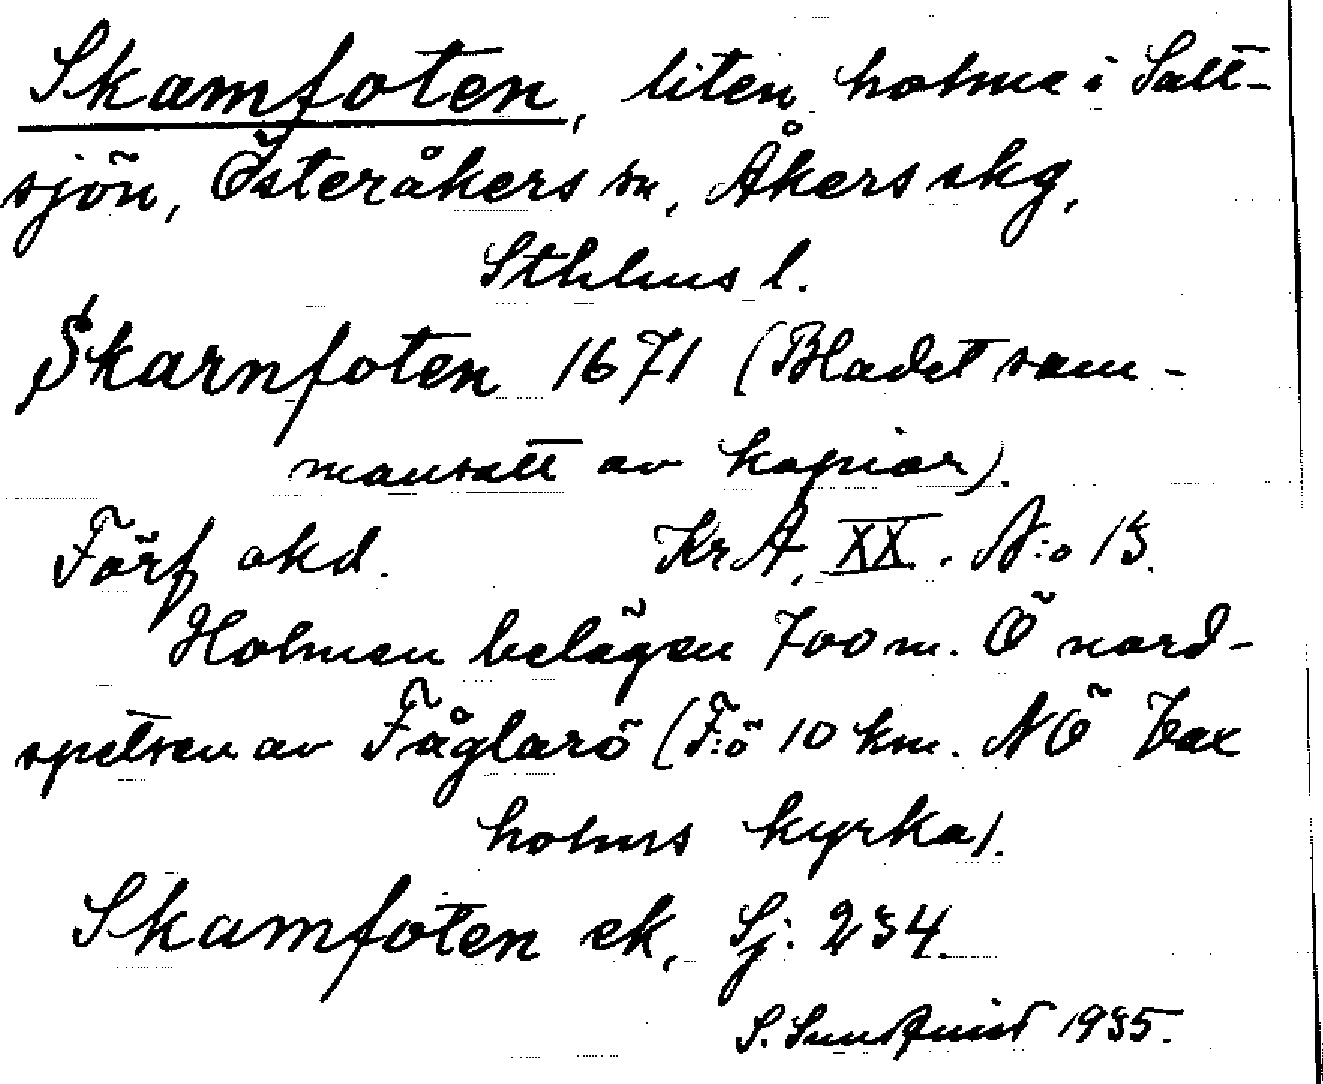 Skamfoten, liten holme i Salt-
sjön, Österåkers sn, Åkers skg,
Sthlms l.
Skarnfoten 1671 (Bladet sam-
mansatt av kopior).
Förf okd. KrA, XX. N:o 13.
Holmen belägen 700 m. Ö nord-
spetsen av Fåglarö (F:ö 10 km. NÖ Vax
holms kyrka).
Skamfoten ek, Sj. 234.
S. Sundquist 1935.